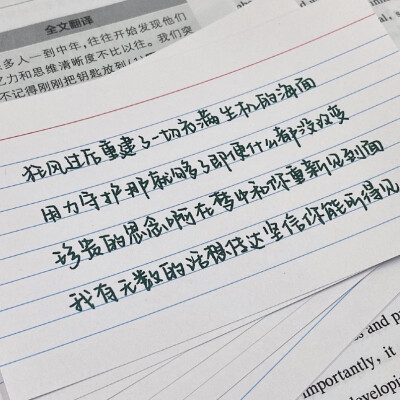 全文翻译
多人一到中年，往往开始发现他们
忆力和思维清晰度不比以往。我们突
不记得刚刚把钥匙放到
狂风过后重建了一切充满生机的海面
用力守护那就够了即使什么都没改变
珍贵的思念啊在梦中和你重新见到面
我有无数的话想传达坚信你能听得见
and pr
mportantly, it
developin